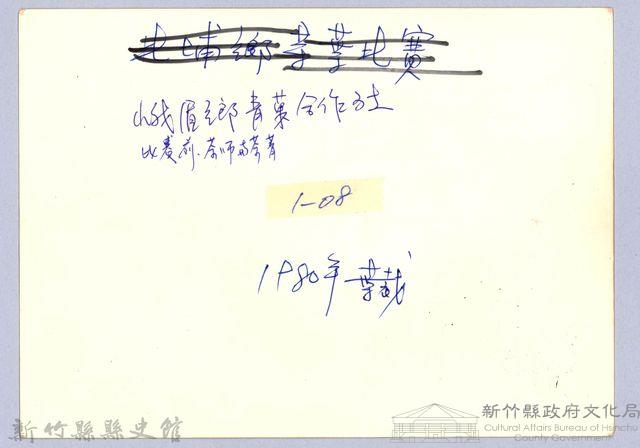 北埔鄉茶葉比賽
峨眉鄉青菓合作社
比賽前.茶師与茶菁
1-08
1980年 葉裁
新竹縣縣史館
新竹縣政府文化局
Cultural Affairs Bureau of Hsinchu
County Government